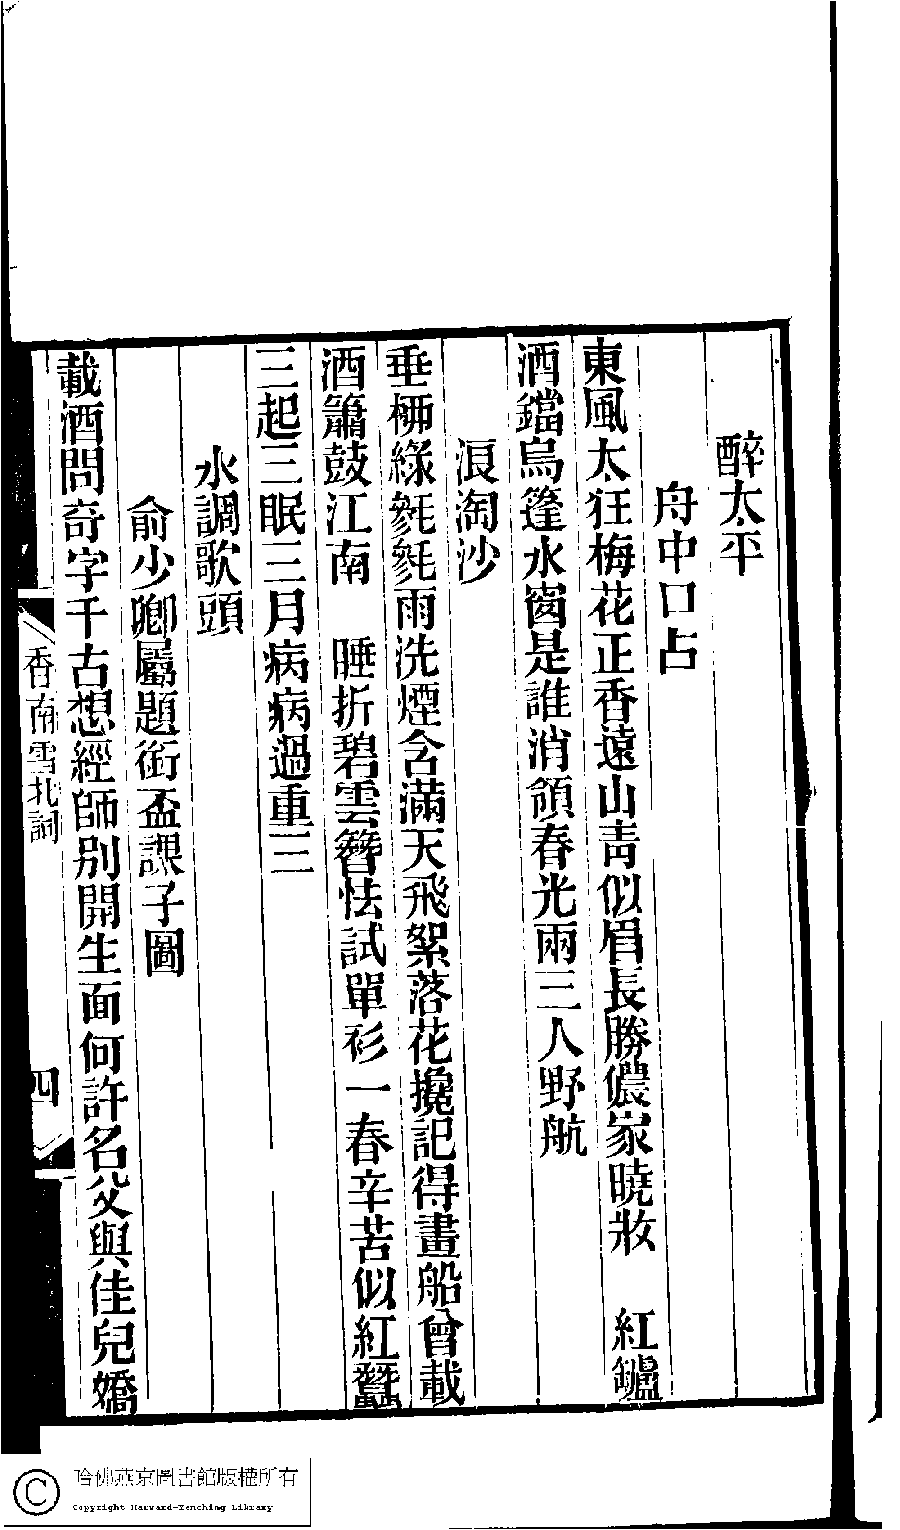 醉太平
舟中口占
東風太狂梅花正香遠山靑似眉長勝儂家曉妝　紅鑪
酒鐺烏篷水窗是誰消領春光兩三人野航
浪淘沙
垂柳綠毿毿雨洗煙含滿天飛絮落花攙記得畫船曾載
酒簫鼓江南　睡折碧雲簪怯試單衫一春辛苦似紅蠶
三起三眠三月病病過重三
水調歌頭
俞少卿屬題銜盃課子圖
載酒問奇字千古想經師別開生面何許名父與佳兒嬌
香南雪北詞
四
哈佛燕京圖書館版權所有
Copyright Harvard-Yenching Library